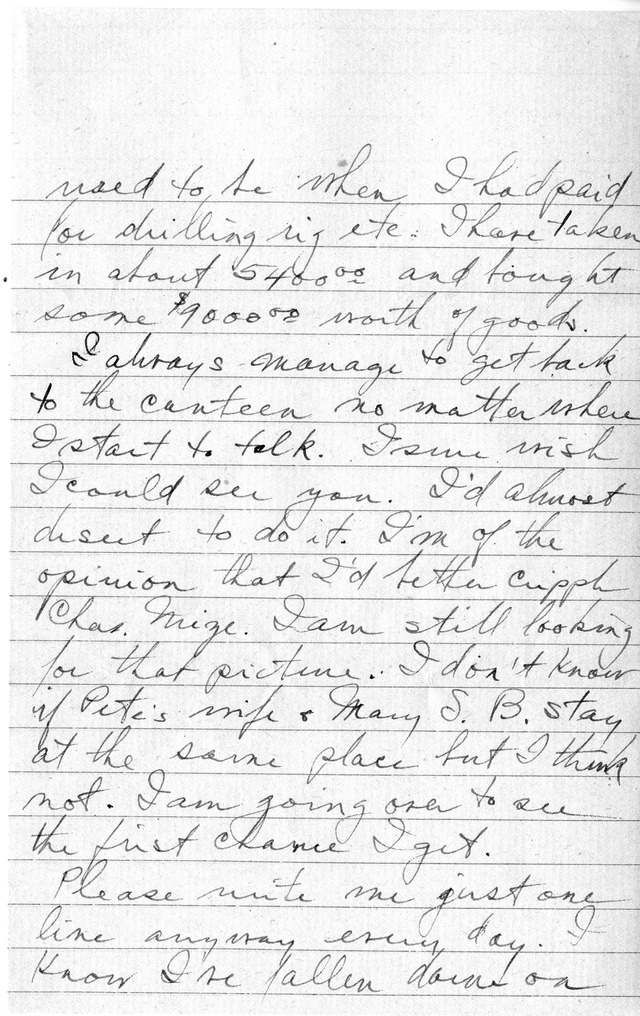 used to be when I had paid
for drilling rig etc. I have taken
in about 5400⁰⁰ and bought
some $9000⁰⁰ worth of goods.
I always manage to get back
to the canteen no matter where
I start to talk. I sure wish
I could see you. I'd almost
desert to do it. I'm of the
opinion that I'd better cripple
Chas. Mize. I am still looking
for that picture. I don't know
if Pete's wife & Mary S. B. stay
at the same place but I think
not. I am going over to see
the first chance I get.
Please write me just one
line anyway every day. I
know I've fallen down on